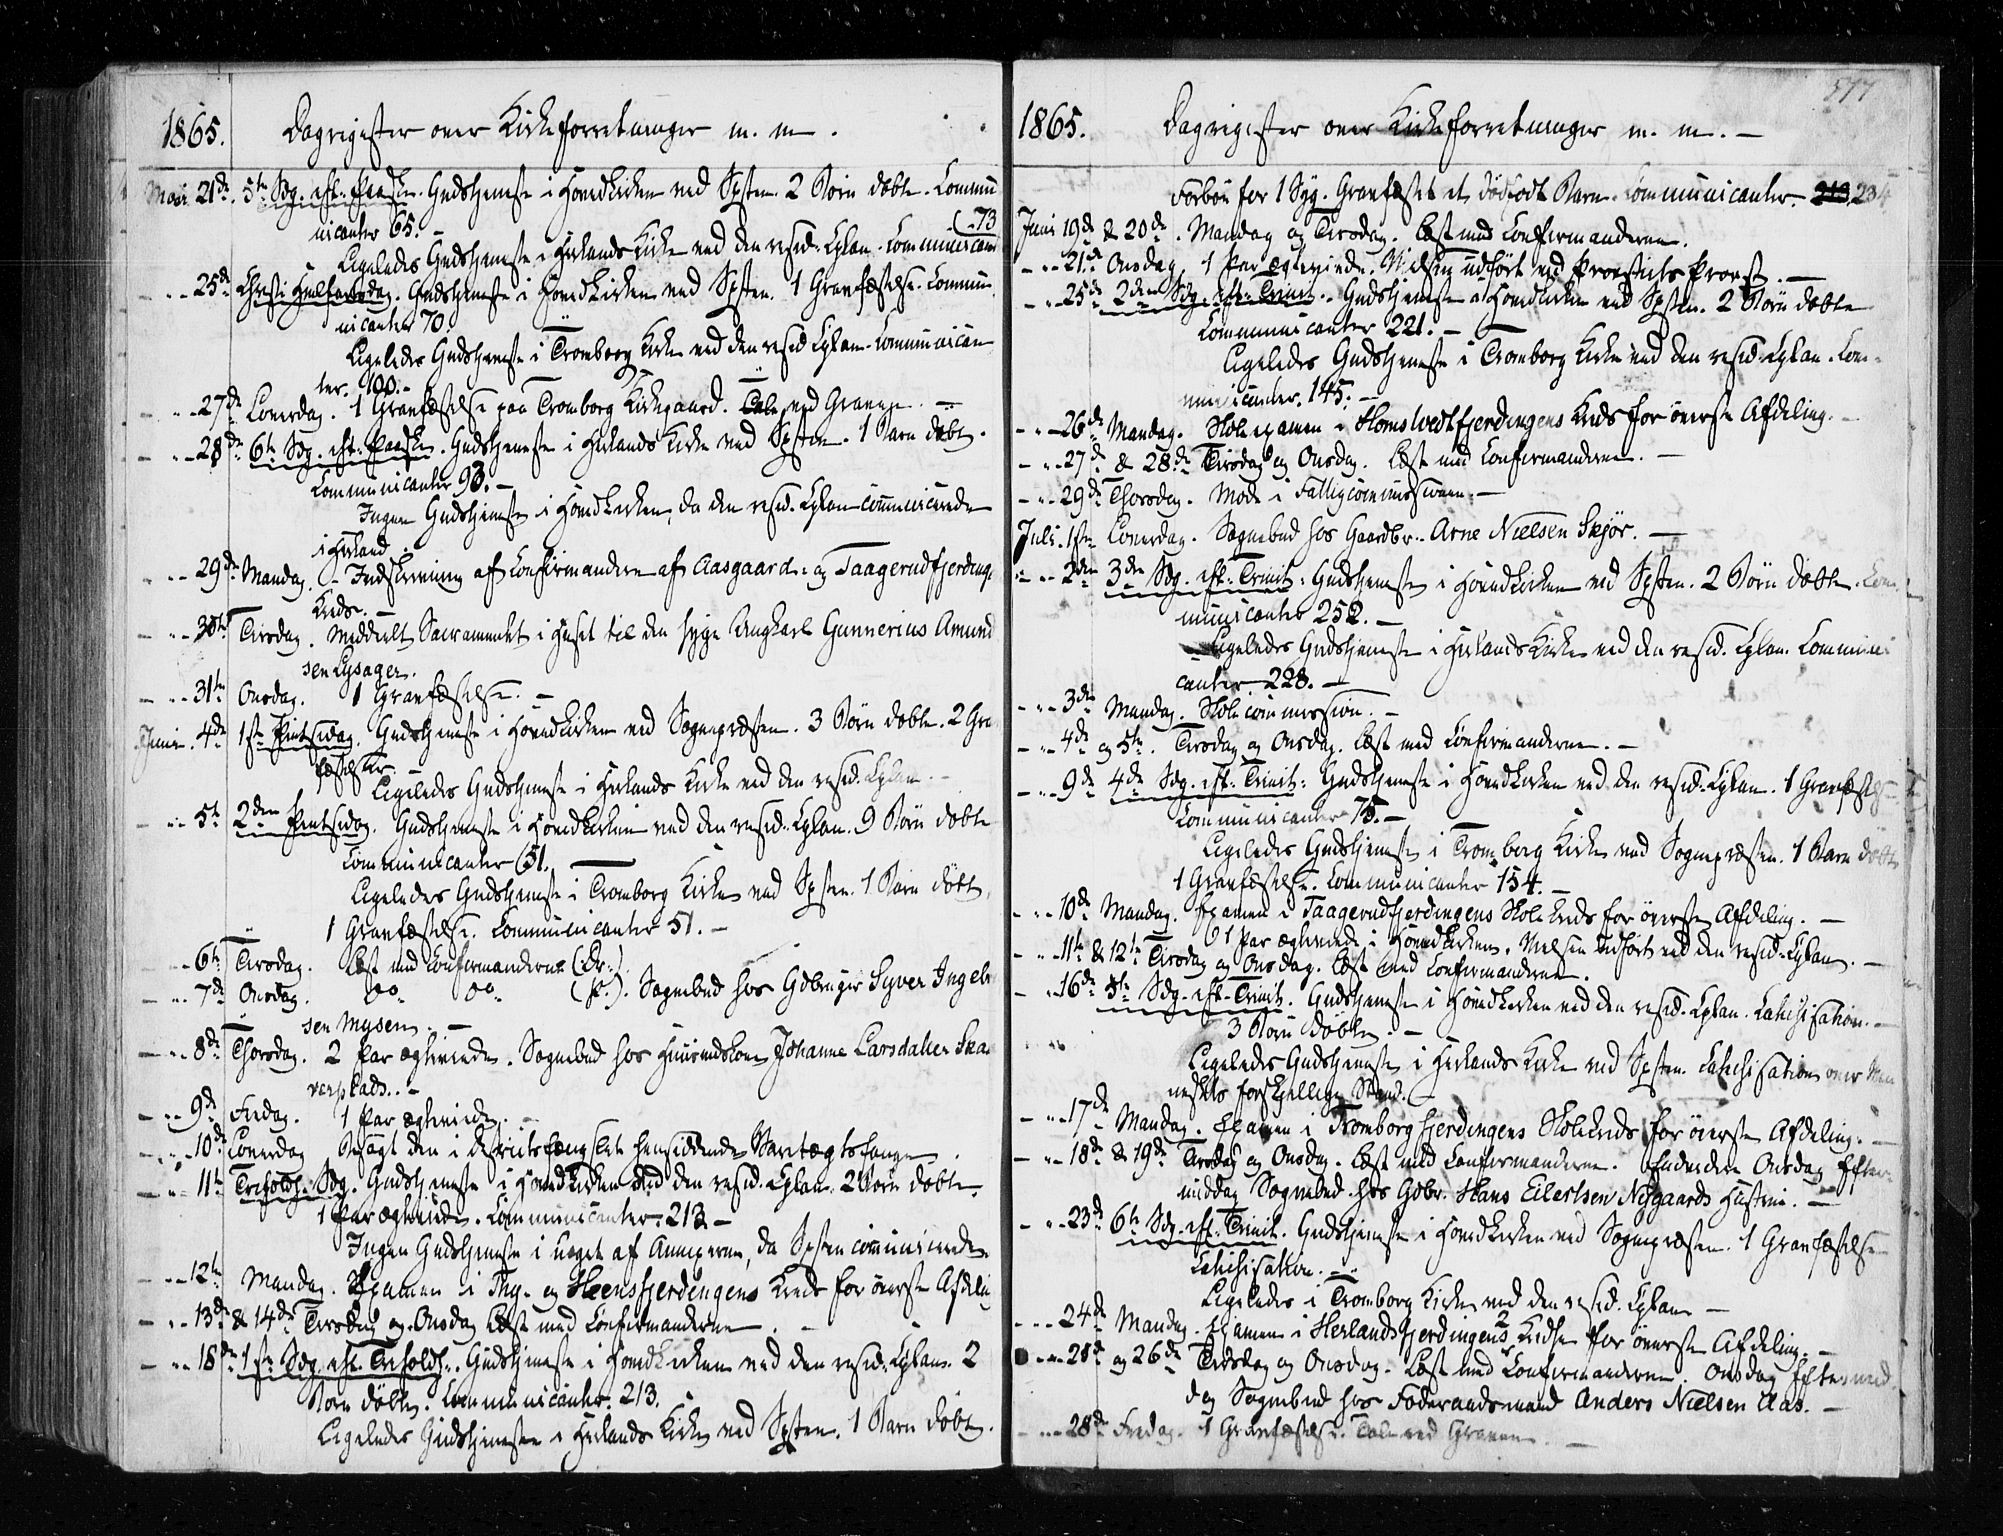 1865. Dagregister over Kirkeforretninger m. m.
Mai 21de. 5te Sdg. eft. Paaske. Gudstjeneste i Hovedkirken ved Spsten. 2 Børn døbte. Commu
nicanter 65. –
Ligeledes Gudstjeneste i Herlands Kirke ved den resid. Cplan. Communicant (73
– " – 25de Christi Himelfartsdag. Gudstjeneste i Hovedkirken ved Spsten. 1 Gravfæstelse. Commu-
nicanter 70.
Ligeledes Gudstjeneste i Tromborg Kirke ved den resid. Cplan. Communican
ter. 100. –
– " – 27de Løverdag. 1 Gravfæstelse paa Tromborg Kirkegaard. Tale ved Graven. –
– " – 28de 6te Sdg. eft. Paaske. Gudstjeneste i Herlands Kirke ved Spsten. 1 Barn døbt.
Communicanter 93. –
Ingen Gudstjeneste i Hovedkirken, da den resid. Cplan communicerede
i Herland.
– " – 29de Mandag. – Indskrivning af Confirmanderne af Aasgaard- og Taagerudfjerdings
Kreds. –
– " – 30te Tirsdag. Meddeelt Sacramentet i Huset til den syge Ungkarl Gunnerius Amund
sen Lysager.
– " – 31te Onsdag. 1 Gravfæstelse. –
Juni 4de 1ste Pintsedag. Gudstjeneste i Hovedkirken ved Sognepræsten. 3 Børn døbte. 2 Gra
fæstelser. –
Ligeledes Gudstjeneste i Herlands Kirke ved den resid. Cplan. –
– " – 5te 2den Pintsedag. Gudstjeneste i Hovedkirken ved den resid. Cplan. 9 Børn døbte
Communicanter 51.
Ligeledes Gudstjeneste i Tromborg Kirke ved Spsten. 1 Barn døbt.
1 Gravfæstelse. Communicanter 51. –
– " – 6te Tirsdag. Læst med Confirmanderne (Dr.)
– " – 7de Onsdag. Do. Do. (P.). Sognebud hos Gdbruger Syver Ingebr
sen Mysen. –
– " – 8de Thorsdag. 2 Par ægteviede. Sognebud hos Huusmdskone Johanne Larsdatter Ska
verplads. –
– " – 9de Fredag. 1 Par ægteviede. –
– " – 10de Løverdag Besøgt den i Districtsfængslet hensiddende Varetægtsfange.
– " – 11te Trefoldh. Sdg. Gudstjeneste i Hovedkirken ved den resid. Cplan. 2 Børn døbte.
1 Par ægteviede. Communicanter. 213 –
Ingen Gudstjeneste i noget af Annexerne, da Spsten communicerede.
– " – 12te Mandag. Examen i Ing- og Heensfjerdingens Kreds for øverste Afdelin
– " – 13de & 14de Tirsdag og Onsdag Læst med Confirmanderne. –
– " – 18de 1ste Sdg. eft. Trefoldh. Gudstjeneste i Hovedkirken ved den resid. Cplan. 2
Børn døbte. Communicanter. 213.
Ligeledes Gudstjeneste i Herlands Kirke ved Spsten. 1 Barn døbt.
577
1865. Dagregister over Kirkeforretninger m. m. –
Forbøn for 1 Syg. Gravfæstet et dødfødt Barn. Communicanter. 213. 234
Juni 19de & 20de. Mandag og Tirsdag. Læst med Confirmanderne.
– " – 21de Onsdag 1 Par ægteviede. Vielsen udført ved Provstiets Provst. –
– " – 25de 2den Sdg. eft. Trinit. Gudstjeneste i Hovedkirken ved Spsten. 2 Børn døbte
Communicanter 221. –
Ligeledes Gudstjeneste i Tromborg Kirke ved den resid. Cplan. Com-
municanter. 145. –
– " – 26de Mandag. Skoleexamen i Homstvedtfjerdingens Kreds for øverste Afdeling. –
– " – 27de & 28de Tirsdag og Onsdag. Læst med Confirmanderne. –
– " – 29de Thorsdag. Møde i Fattigcommissionen. –
Juli. 1ste Løverdag. Sognebud hos Gaardbr. Arne Nielsen Skjør. –
– " – 2den 3die Sdg. eft. Trinit. Gudstjeneste i Hovedkirken ved Spsten. 2 Børn døbte. Com
municanter 252. –
Ligeledes Gudstjeneste i Herlands Kirke ved den resid. Cplan. Communi
canter. 228. –
– " – 3die Mandag. Skolecommission. –
– " – 4de og 5te. Tirsdag og Onsdag. Læst med Confirmanderne. –
– " – 9de 4de Sdg. eft. Trinit. Gudstjeneste i Hovedkirken ved den resid. Cplan. 1 Gravfæstelse
Communicanter 75. –
Ligeledes Gudstjeneste i Tromborg Kirke ved Sognepræsten. 1 Barn døbt
1 Gravfæstelse. Communicanter 154. –
– " – 10de Mandag. Examen i Taagerudfjerdingens Skolekreds for øverste Afdeling. –
1 Par ægteviede i Hovedkirken. Vielsen udført ved den resid. Cplan. –
– " – 11te & 12te Tirsdag og Onsdag. Læst med Confirmanderne.
– " – 16de 5te Sdg. eft. Trinit. Gudstjeneste i Hovedkirken ved den resid. Cplan. Catechisation. –
3 Børn døbte. –
Ligeledes Gudstjeneste i Herlands Kirke ved Spsten. Catechisation over Men
neskets forskjellige Stand. –
– " – 17de Mandag. Examen i Tromborgfjerdingens Skolekreds for øverste Afdeling. –
– " – 18de & 19de Tirsdag og Onsdag. Læst med Confirmanderne. Endvidere Onsdag Efter-
middag Sognebud hos Gdbr. Hans Eilertsen Nygaards Hustru. –
– " – 23de 6te Sdg. eft. Trinit. Gudstjeneste i Hovedkirken ved Sognepræsten. 1 Gravfæstelse
Catechisation. –
Ligeledes i Tromborg Kirke ved den resid. Cplan –
– " – 24de Mandag. Examen i Herlandsfjerdingens 2 Kredse for øverste Afdeling. –
– " – 25de og 26de Tirsdag og Onsdag. Læst med Confirmanderne. Onsdag Eftermid
dag Sognebud hos Føderaadsmand Anders Nielsen Aas. –
– " – 28de Fredag. 1 Gravfæstelse. Tale ved Graven. –